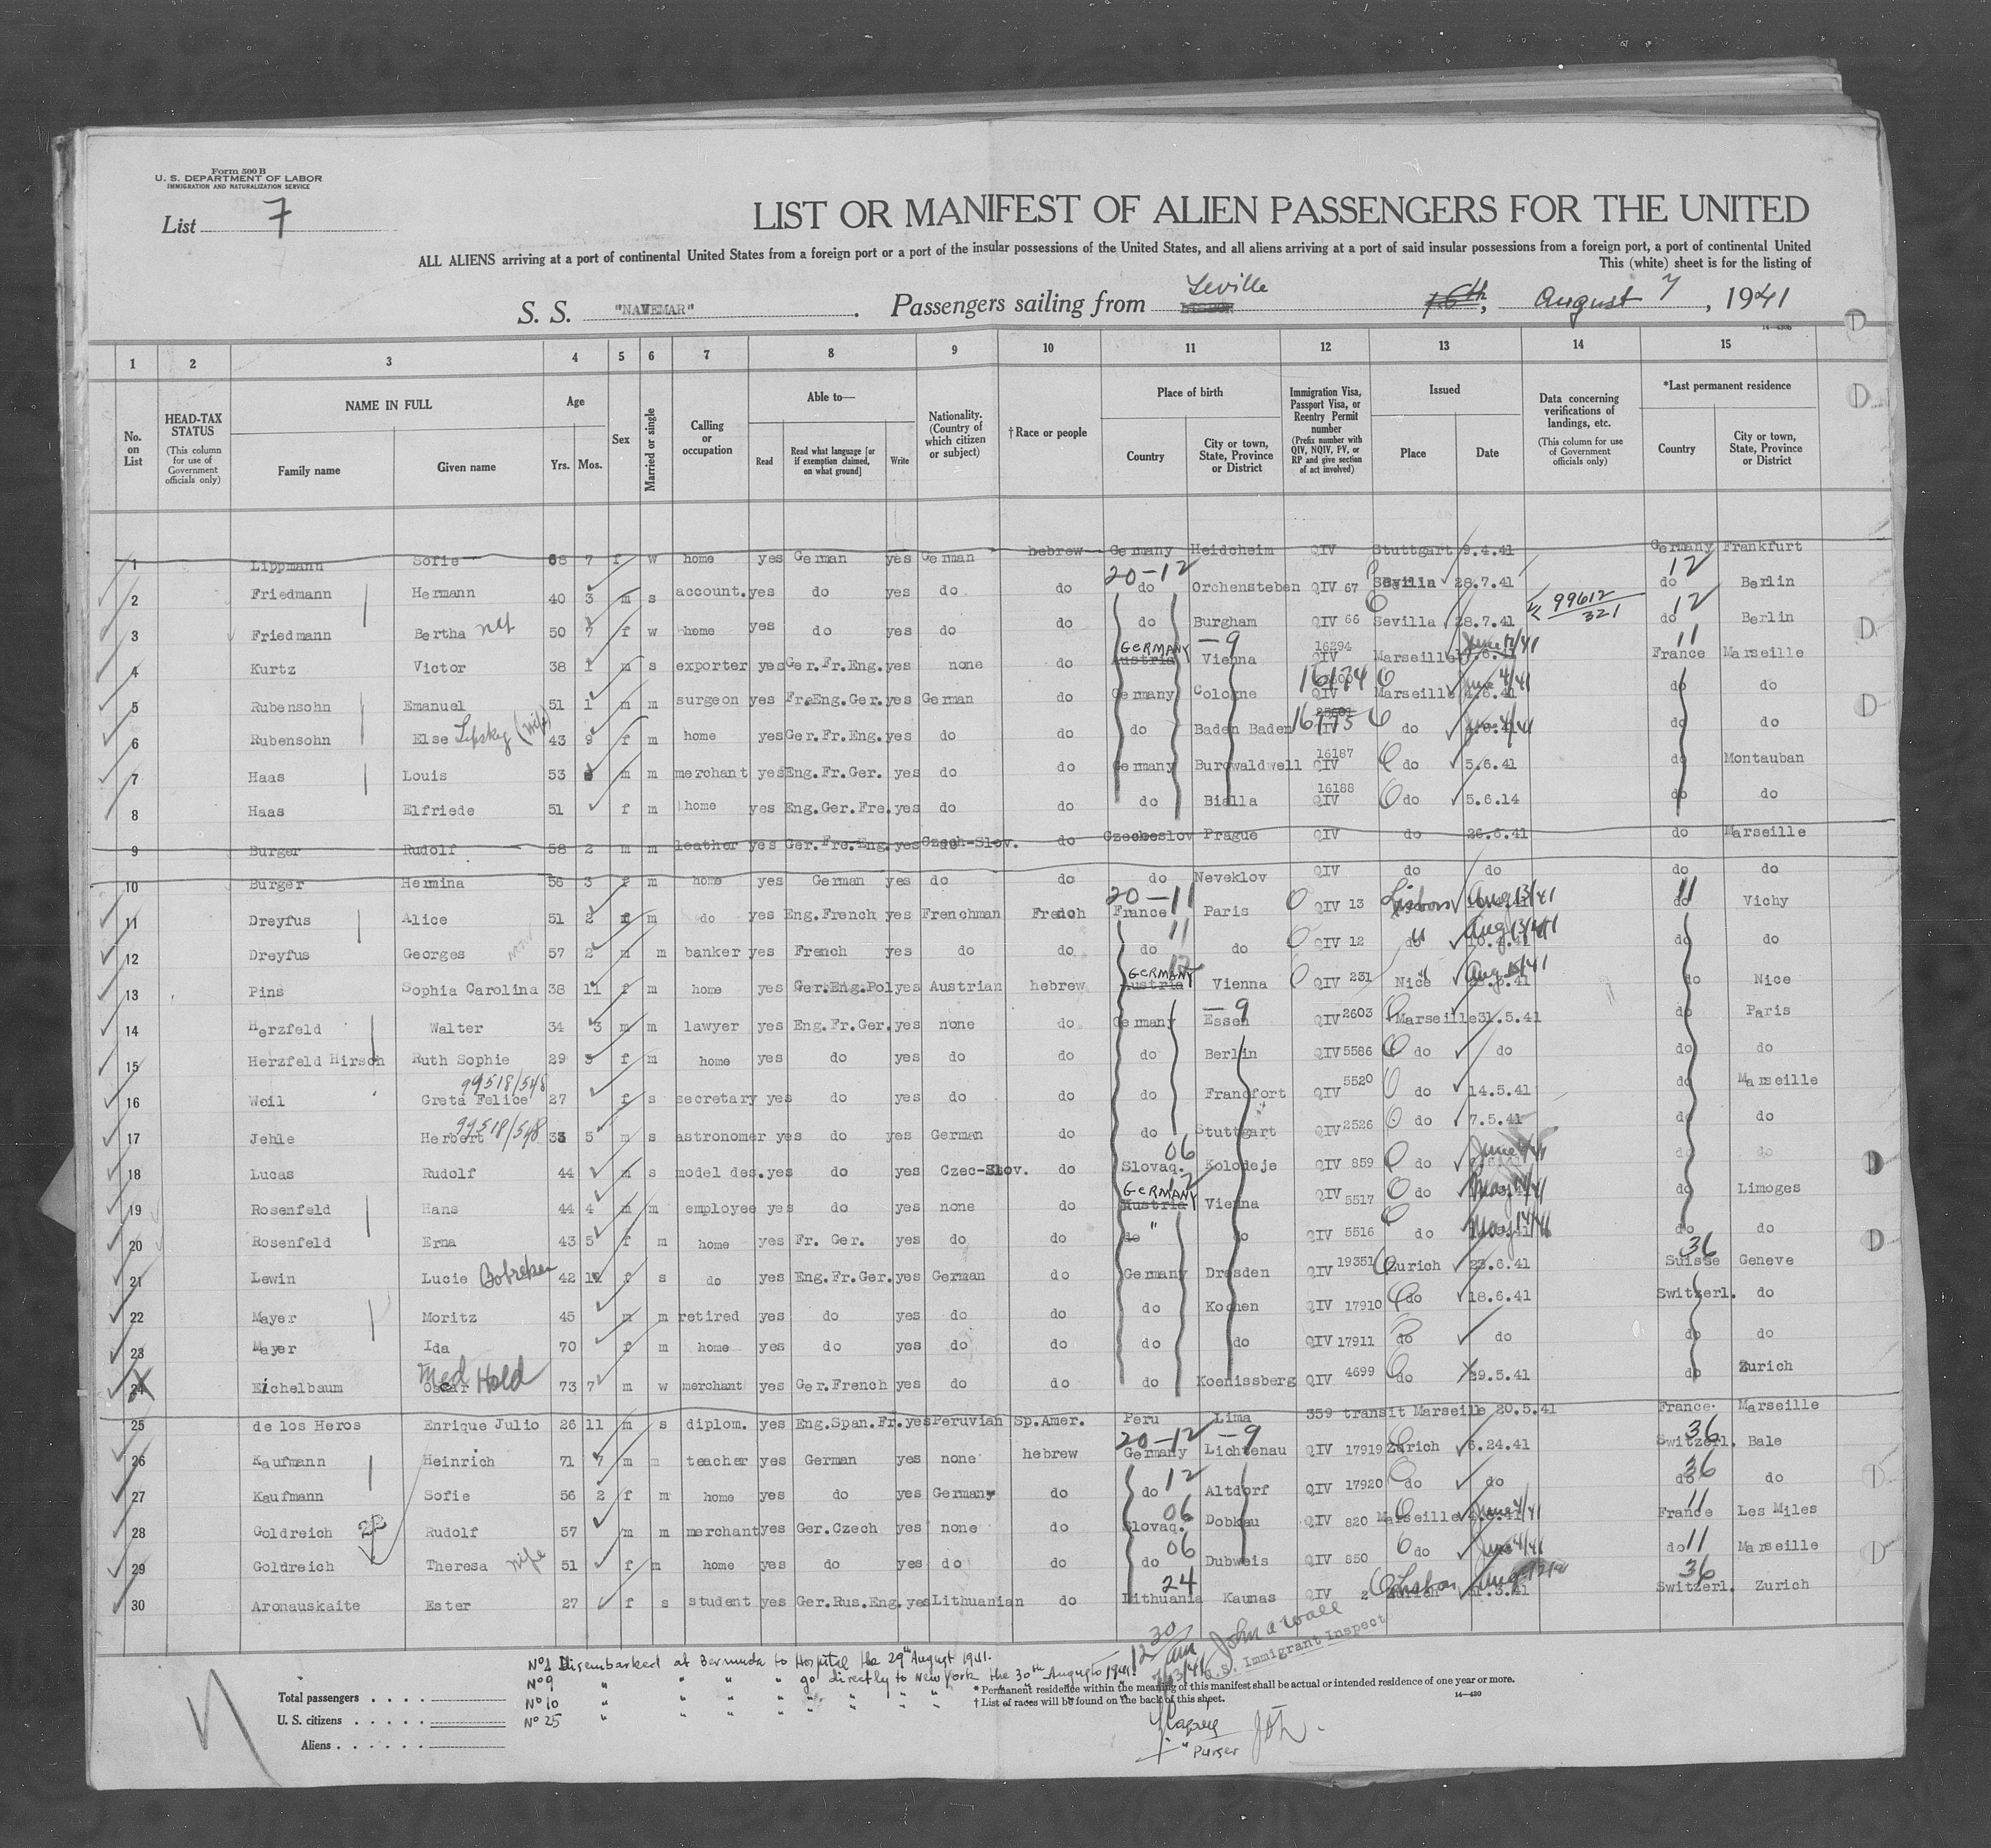 Form 500 B
U. S. DEPARTMENT OF LABOR
IMMIGRATION AND NATURALIZATION SERVICE
List 7
LIST OR MANIFEST OF ALIEN PASSENGERS FOR THE UNITED
ALL ALIENS arriving at a port of continental United States from a foreign port or a port of the insular possessions of the United States, and all aliens arriving at a port of said insular possessions from a foreign port, a port of continental United
This (white) sheet is for the listing of
S. S. "NAVEMAR". Passengers sailing from Seville 16th, August 7, 1941
14-430b
1 2 3 4 5 6 7 8 9 10 11 12 13 14 15
No. on List
HEAD-TAX STATUS (This column for use of Government officials only)
NAME IN FULL Family name Given name
Age Yrs. Mos.
Sex
Married or single
Calling or occupation
Able to— Read Read what language [or if exemption claimed, on what ground] Write
Nationality. (Country of which citizen or subject)
†Race or people
Place of birth Country City or town, State, Province or District
Immigration Visa, Passport Visa, or Reentry Permit number (Prefix number with QIV, NQIV, PV, or RP and give section of act involved)
Issued Place Date
Data concerning verifications of landings, etc. (This column for use of Government officials only)
*Last permanent residence Country City or town, State, Province or District
1 Lippmann Sofie 68 7 f w home yes German yes German hebrew Germany Heidcheim QIV Stuttgart 9.4.41 Germany Frankfurt
20-12 12
2 Friedmann Hermann 40 3 m s account. yes do yes do do do Orchensteben QIV 67 Sevilla 28.7.41 do Berlin
99612/321 12
3 Friedmann Bertha 50 7 f w home yes do yes do do do Burgham QIV 66 Sevilla 28.7.41 do Berlin
GERMANY -9 16294 June 17/41 11
4 Kurtz Victor 38 1 m s exporter yes Ger.Fr.Eng. yes none do Austria Vienna QIV Marseille France Marseille
16174 June 4/41
5 Rubensohn Emanuel 51 1 m m surgeon yes Fr.Eng.Ger. yes German do Germany Cologne QIV Marseille 4.6.41 do do
6 Rubensohn Else Lipsky (wife) 43 9 f m home yes Ger.Fr.Eng. yes do do do Baden Baden 16175 do do do
16187
7 Haas Louis 53 m m merchant yes Eng.Fr.Ger. yes do do Germany Burgwaldwell QIV do 5.6.41 do Montauban
16188
8 Haas Elfriede 51 f m home yes Eng.Ger.Fre. yes do do do Bialla QIV do 5.6.14 do do
9 Burger Rudolf 58 2 m m leather yes Ger.Fre.Eng. yes Czech-Slov. do Czecheslov Prague QIV do 26.6.41 do Marseille
10 Burger Hermina 56 3 f m home yes German yes do do do Neveklov QIV do do do do
20-11 11
11 Dreyfus Alice 51 2 f m do yes Eng.French yes Frenchman French France Paris QIV 13 Lisbon Aug 13/41 do Vichy
11
12 Dreyfus Georges 57 2 m m banker yes French yes do do do do QIV 12 do Aug 13/41 do do
GERMANY 12
13 Pins Sophia Carolina 38 11 f m home yes Ger.Eng.Pol yes Austrian hebrew Austria Vienna QIV 231 Nice Aug 15/41 do Nice
-9
14 Herzfeld Walter 34 3 m m lawyer yes Eng.Fr.Ger. yes none do Germany Essen QIV 2603 Marseille 31.5.41 do Paris
15 Herzfeld Hirsch Ruth Sophie 29 3 f m home yes do yes do do do Berlin QIV 5586 do do do do
99518/548
16 Weil Greta Felice 27 f s secretary yes do yes do do do Francfort QIV 5520 do 14.5.41 do Marseille
99518/548
17 Jehle Herbert 33 5 m s astronomer yes do yes German do do Stuttgart QIV 2526 do 7.5.41 do do
06
18 Lucas Rudolf 44 m s model des. yes do yes Czec-Slov. do Slovaq. Kolodeje QIV 859 do do do
GERMANY 12
19 Rosenfeld Hans 44 4 m m employee yes do yes none do Austria Vienna QIV 5517 do May 14/41 do Limoges
20 Rosenfeld Erna 43 5 f m home yes Fr. Ger. yes do do do " do QIV 5516 do May 14/41 do do
36
21 Lewin Lucie 42 f s do yes Eng.Fr.Ger. yes German do Germany Dresden QIV 19351 Zurich 23.6.41 Suisse Geneve
22 Mayer Moritz 45 m m retired yes do yes do do do Kochen QIV 17910 do 18.6.41 Switzerl. do
23 Mayer Ida 70 f m home yes do yes do do do do QIV 17911 do do do do
Med Hold
24 Eichelbaum Oscar 73 7 m w merchant yes Ger.French yes do do do Koenissberg QIV 4699 do 29.5.41 do Zurich
25 de los Heros Enrique Julio 26 11 m s diplom. yes Eng.Span.Fr. yes Peruvian Sp.Amer. Peru Lima 359 transit Marseille 20.5.41 France Marseille
20-12 -9 36
26 Kaufmann Heinrich 71 7 m m teacher yes German yes none hebrew Germany Lichtenau QIV 17919 Zurich 6.24.41 Switzerl. Bale
12 36
27 Kaufmann Sofie 56 2 f m home yes do yes Germany do do Altdorf QIV 17920 do do do do
06 11
28 Goldreich Rudolf 57 m m merchant yes Ger.Czech yes none do Slovaq. Dobkau QIV 820 Marseille June 4/41 France Les Miles
06 11
29 Goldreich Theresa wife 51 f m home yes do yes do do do Dubweis QIV 850 do June 4/41 do Marseille
24 36
30 Aronauskaite Ester 27 f s student yes Ger.Rus.Eng. yes Lithuanian do Lithuania Kaunas QIV 2 Lisbon Switzerl. Zurich
John A Wall
U.S. Immigrant Inspect
Nº1 Disembarked at Bermuda to Hospital the 29th August 1941.
Nº9 " " " go directly to New York the 30th Augusto 1941.
Nº10 " " " " " " "
Nº25 " " " " " " "
Total passengers
U. S. citizens
Aliens
* Permanent residence within the meaning of this manifest shall be actual or intended residence of one year or more.
† List of races will be found on the back of this sheet.
14-430
Purser